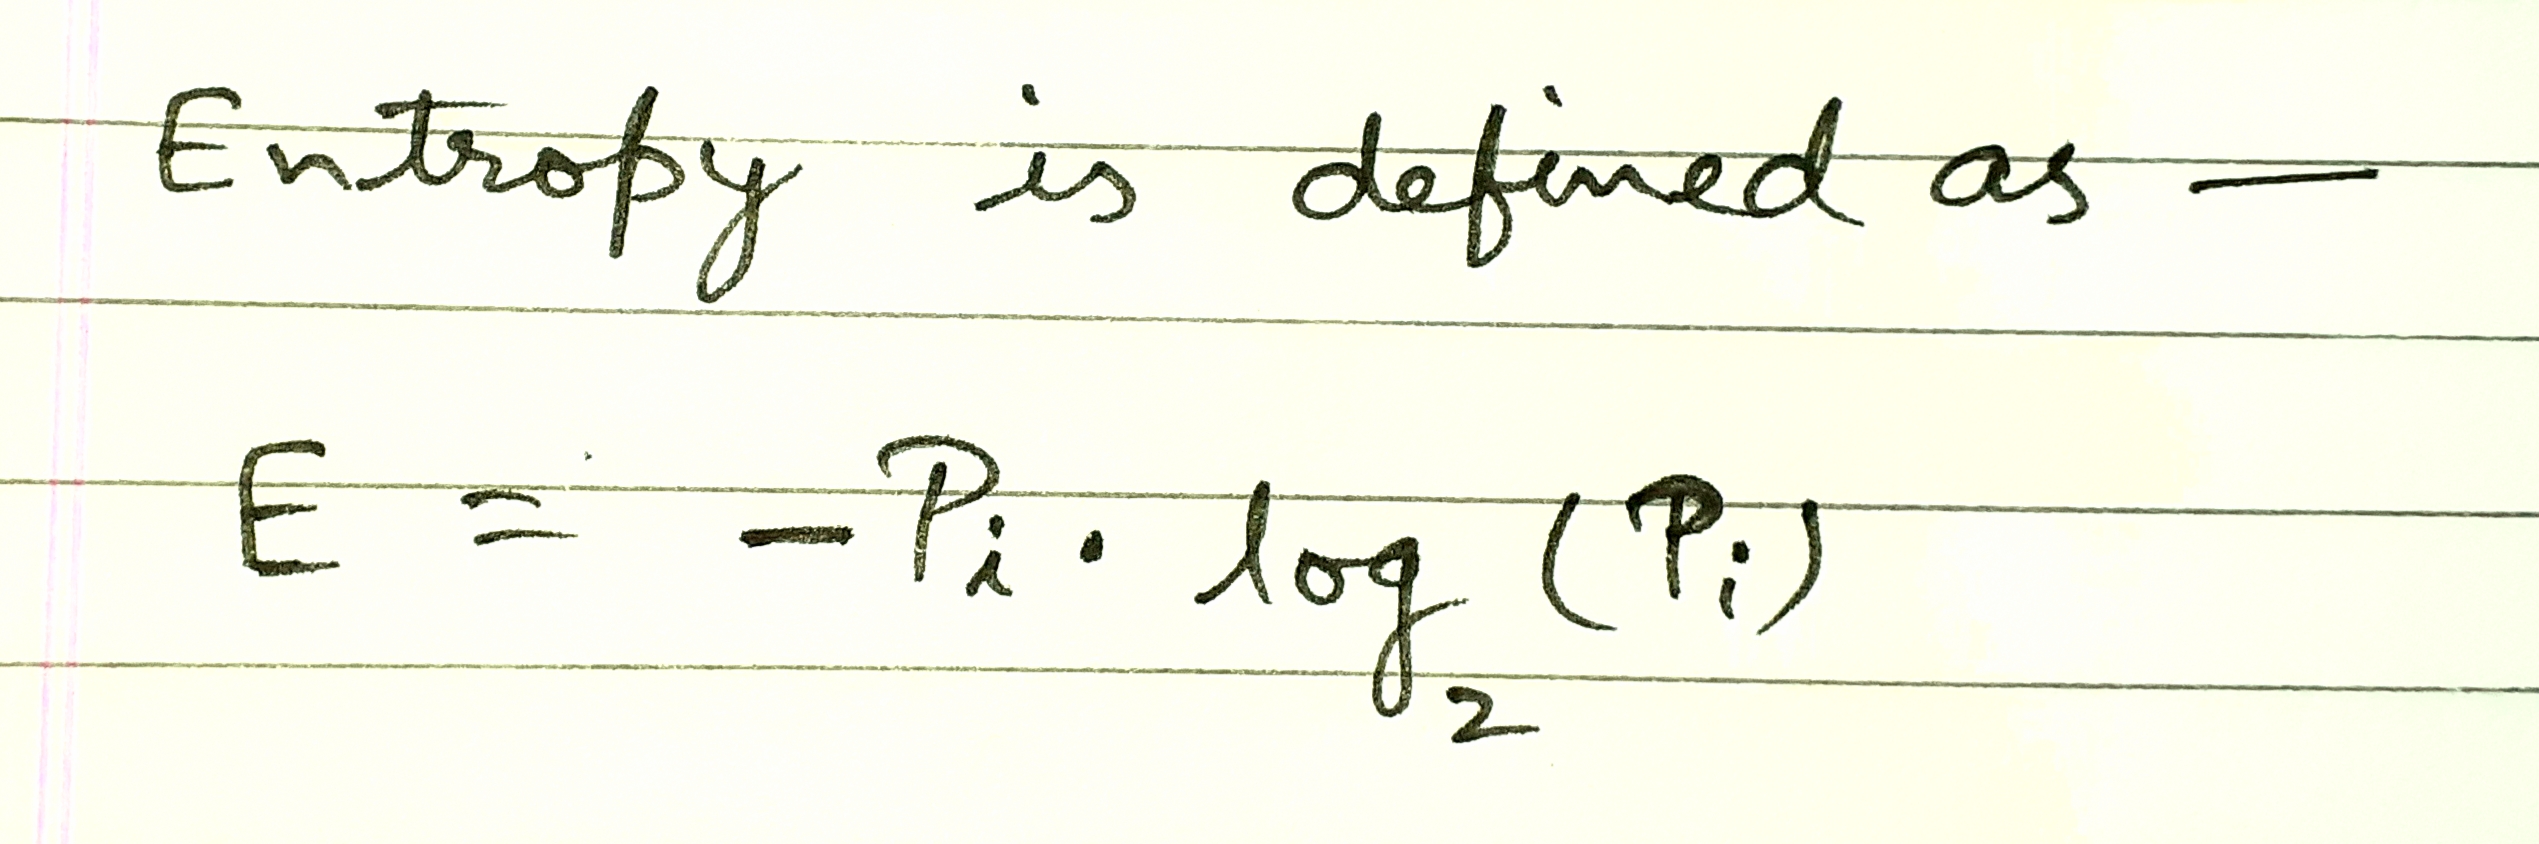 Entropy is defined as —
E = -Pi . log₂ (Pi)